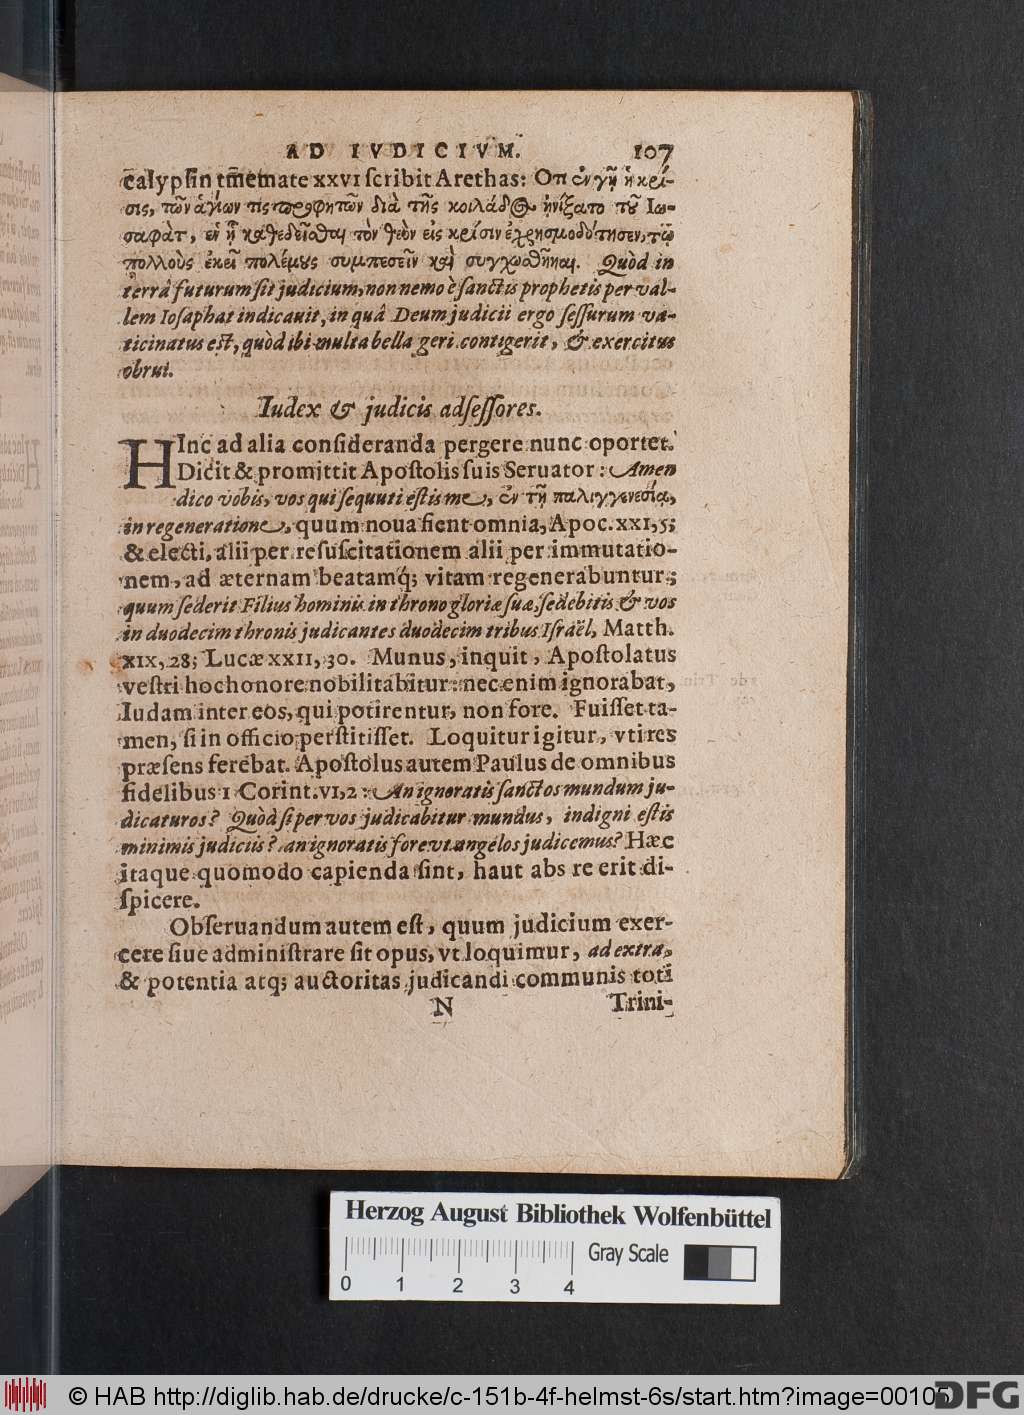 AD IVDICIVM. 107
calypsin tmemate XXVI scribit Arethas: Οπ ἐν γῇ ἡ κρί-
σις, τῶν ἁγίων τις προφητῶν διὰ τῆς κοιλάδος ᾐνίξατο τοῦ Ιω-
σαφὰτ, ἐν ᾗ καθεδεῖσθαι τὸν θεὸν εἰς κρίσιν ἐχρησμοδότησεν, τῷ
πολλοὺς ἐκεῖ πολέμους συμπεσεῖν καὶ συγχωσθῆναι. Quòd in
terrâ futurum sit judicium, non nemo è sanctis prophetis per val-
lem Iosaphat indicauit, in quâ Deum judicii ergo sessurum va-
ticinatus est, quòd ibi multa bella geri contigerit, & exercitus
obrui.
Iudex & judicis adsessores.
HInc ad alia consideranda pergere nunc oportet.
Dicit & promittit Apostolis suis Seruator: Amen
dico vobis, vos qui sequuti estis me, ἐν τῇ παλιγγενεσίᾳ,
in regeneratione, quum noua fient omnia, Apoc. XXI, 5;
& electi, alii per resuscitationem alii per immutatio-
nem, ad æternam beatamq; vitam regenerabuntur;
quum sederit Filius hominis in throno gloriæ suæ, sedebitis & vos
in duodecim thronis judicantes duodecim tribus Israël, Matth.
XIX, 28; Lucæ XXII, 30. Munus, inquit, Apostolatus
vestri hoc honore nobilitabitur: nec enim ignorabat,
Iudam inter eos, qui potirentur, non fore. Fuisset ta-
men, si in officio perstitisset. Loquitur igitur, vti res
præsens ferebat. Apostolus autem Paulus de omnibus
fidelibus 1 Corint. VI, 2: An ignoratis sanctos mundum ju-
dicaturos? Quòd si per vos judicabitur mundus, indigni estis
minimis judiciis? an ignoratis fore vt angelos judicemus? Hæc
itaque quomodo capienda sint, haut abs re erit di-
spicere.
Obseruandum autem est, quum judicium exer-
cere siue administrare sit opus, vt loquimur, ad extra,
& potentia atq; auctoritas judicandi communis toti
N Trini-
Herzog August Bibliothek Wolfenbüttel
Gray Scale
0 1 2 3 4
© HAB http://diglib.hab.de/drucke/c-151b-4f-helmst-6s/start.htm?image=00105
DFG